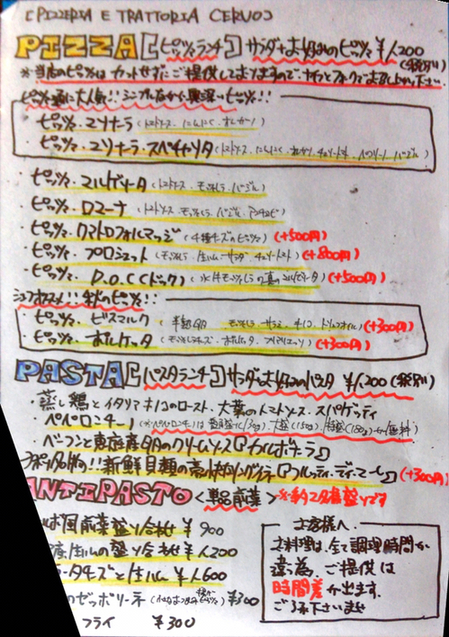 [PIZZERIA E TRATTORIA CERVO]
PIZZA [ピッツァランチ] サラダ+お好みのピッツァ ¥1,200 (税別)
※当店のピッツァはカットせずにご提供しておりますので、ナイフとフォークでお召し上がり下さい。
ピッツァ通に大人気!! シンプルながら奥深いピッツァ!!
・ピッツァ・マリナーラ (トマトソース、にんにく、オレガノ)
・ピッツァ・マリナーラ・スペチャリタ (トマトソース、にんにく、オレガノ、チェリートマト、ペコリーノ、バジル)
・ピッツァ・マルゲリータ (トマトソース、モッツァレラ、バジル)
・ピッツァ・ロマーナ (トマトソース、モッツァレラ、バジル、アンチョビ)
・ピッツァ・クアトロフォルマッジ (4種チーズのピッツァ) (+500円)
・ピッツァ・プロシュット (モッツァレラ、生ハム、サラダ、チェリートマト) (+800円)
・ピッツァ・D.O.C(ドック) (水牛モッツァレラの真のマルゲリータ) (+500円)
シェフオススメ!! 秋のピッツァ!!
・ピッツァ・ビスマルク (半熟卵、モッツァレラ、サラミ、キノコ、トリュフオイル) (+300円)
・ピッツァ・ポルケッタ (モッツァレラチーズ、ポルケッタ、フリアリエッリ) (+300円)
PASTA [パスタランチ] サラダ+お好みのパスタ ¥1,200 (税別)
・蒸し鶏とイタリアキノコのロースト、大葉のトマトソース スパゲッティ
ペペロンチーノ (※ペペロンチーノは 普通(130g)、大盛(150g)、特盛(180g)が無料)
・ベーコンと東庄産卵のクリームソース『カルボナーラ』
新鮮貝類の リングイネ『フルッティ・ディ・マーレ』 (+300円)
ANTIPASTO <単品前菜> ※約2名様盛りです
前菜盛り合わせ ¥900
産生ハムの盛り合わせ ¥1,200
ータチーズと生ハム ¥1,600
のゼッポリーネ ¥300
フライ ¥300
お客様へ
お料理は、全て調理時間が
違う為、ご提供は
時間差が出ます。
ご了承下さいませ